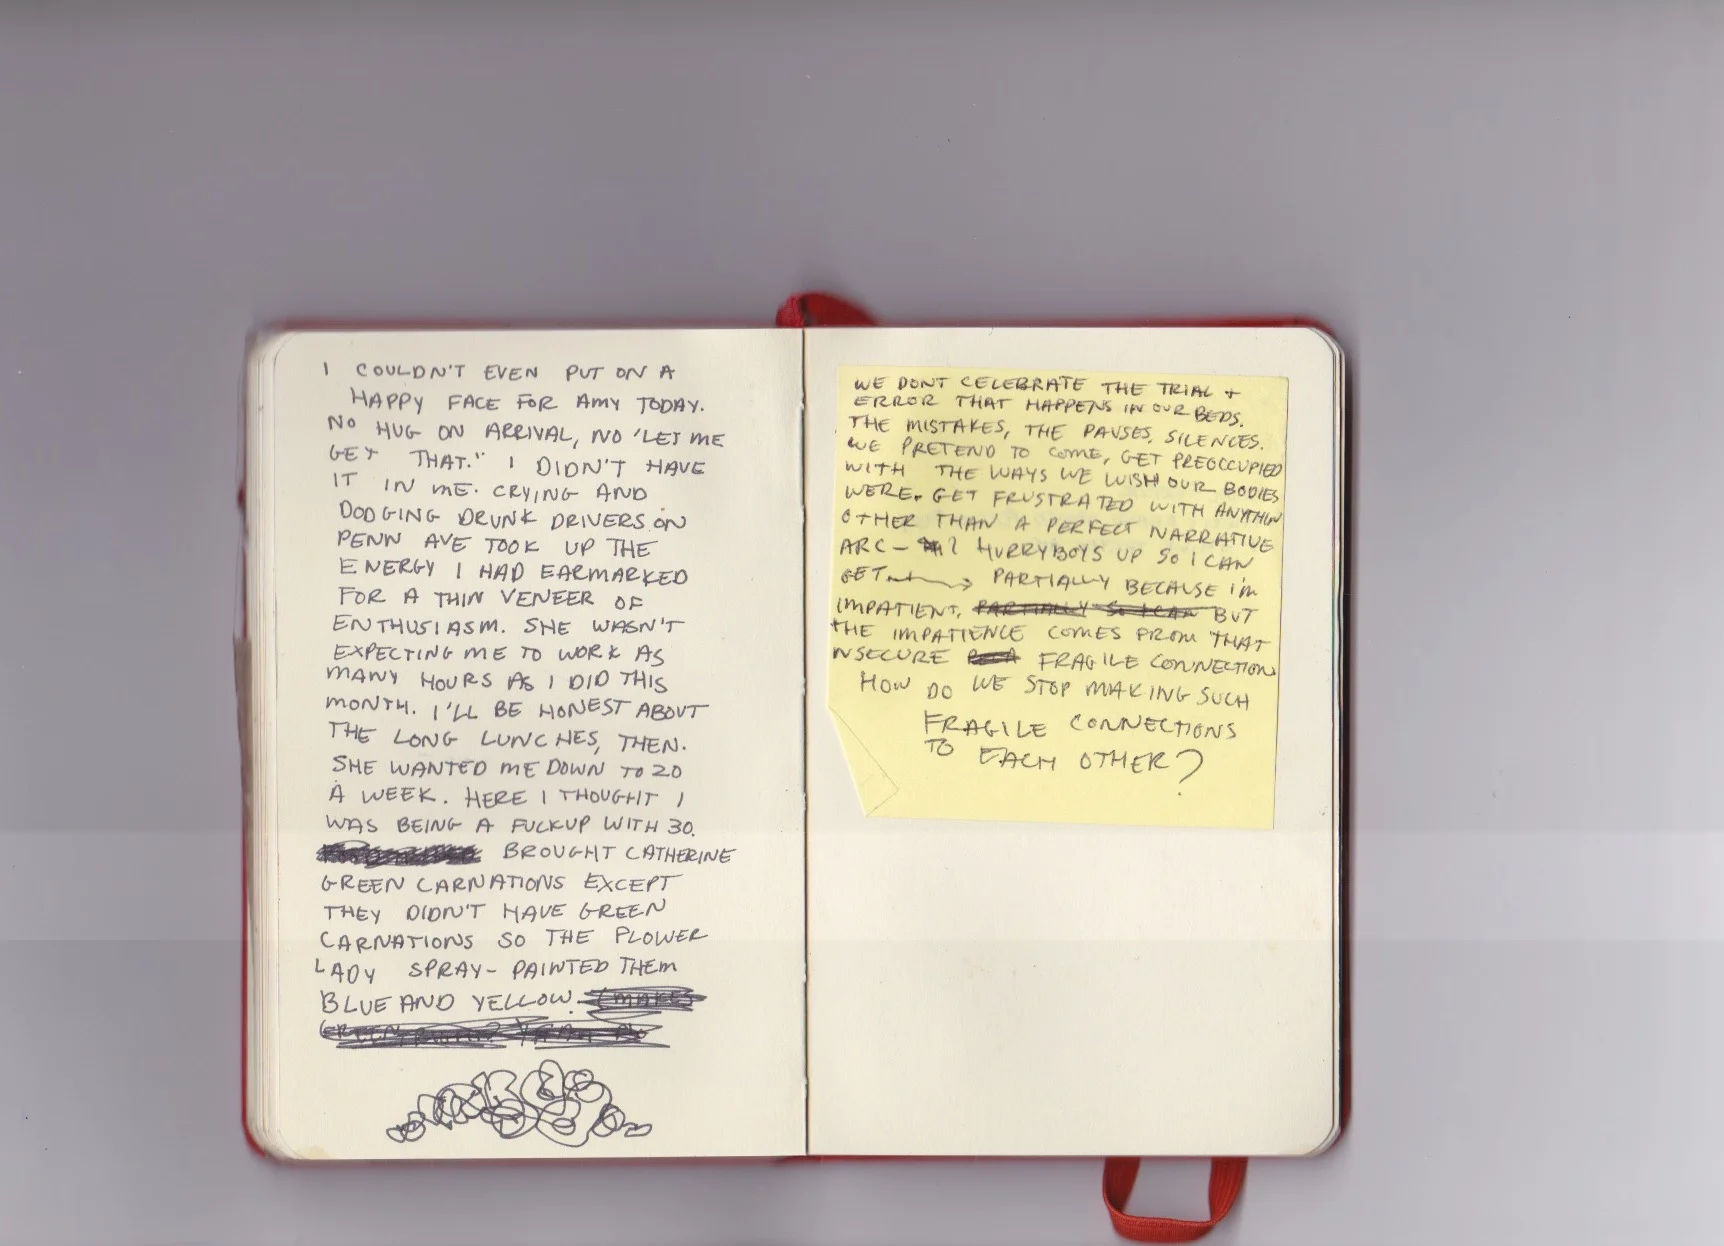 I COULDN'T EVEN PUT ON A
HAPPY FACE FOR AMY TODAY.
NO HUG ON ARRIVAL, NO 'LET ME
GET THAT." I DIDN'T HAVE
IT IN ME. CRYING AND
DODGING DRUNK DRIVERS ON
PENN AVE TOOK UP THE
ENERGY I HAD EARMARKED
FOR A THIN VENEER OF
ENTHUSIASM. SHE WASN'T
EXPECTING ME TO WORK AS
MANY HOURS AS I DID THIS
MONTH. I'LL BE HONEST ABOUT
THE LONG LUNCHES, THEN.
SHE WANTED ME DOWN TO 20
A WEEK. HERE I THOUGHT I
WAS BEING A FUCKUP WITH 30.
BROUGHT CATHERINE
GREEN CARNATIONS EXCEPT
THEY DIDN'T HAVE GREEN
CARNATIONS SO THE FLOWER
LADY SPRAY-PAINTED THEM
BLUE AND YELLOW. (MAKES
GREEN
WE DONT CELEBRATE THE TRIAL +
ERROR THAT HAPPENS IN OUR BEDS.
THE MISTAKES, THE PAUSES, SILENCES.
WE PRETEND TO COME, GET PREOCCUPIED
WITH THE WAYS WE WISH OUR BODIES
WERE. GET FRUSTRATED WITH ANYTHIN
OTHER THAN A PERFECT NARRATIVE
ARC— I HURRY BOYS UP SO I CAN
GET → PARTIALLY BECAUSE I'M
IMPATIENT, PARTIALLY SO I CAN BUT
THE IMPATIENCE COMES FROM THAT
NSECURE FRAGILE CONNECTION
HOW DO WE STOP MAKING SUCH
FRAGILE CONNECTIONS
TO EACH OTHER?